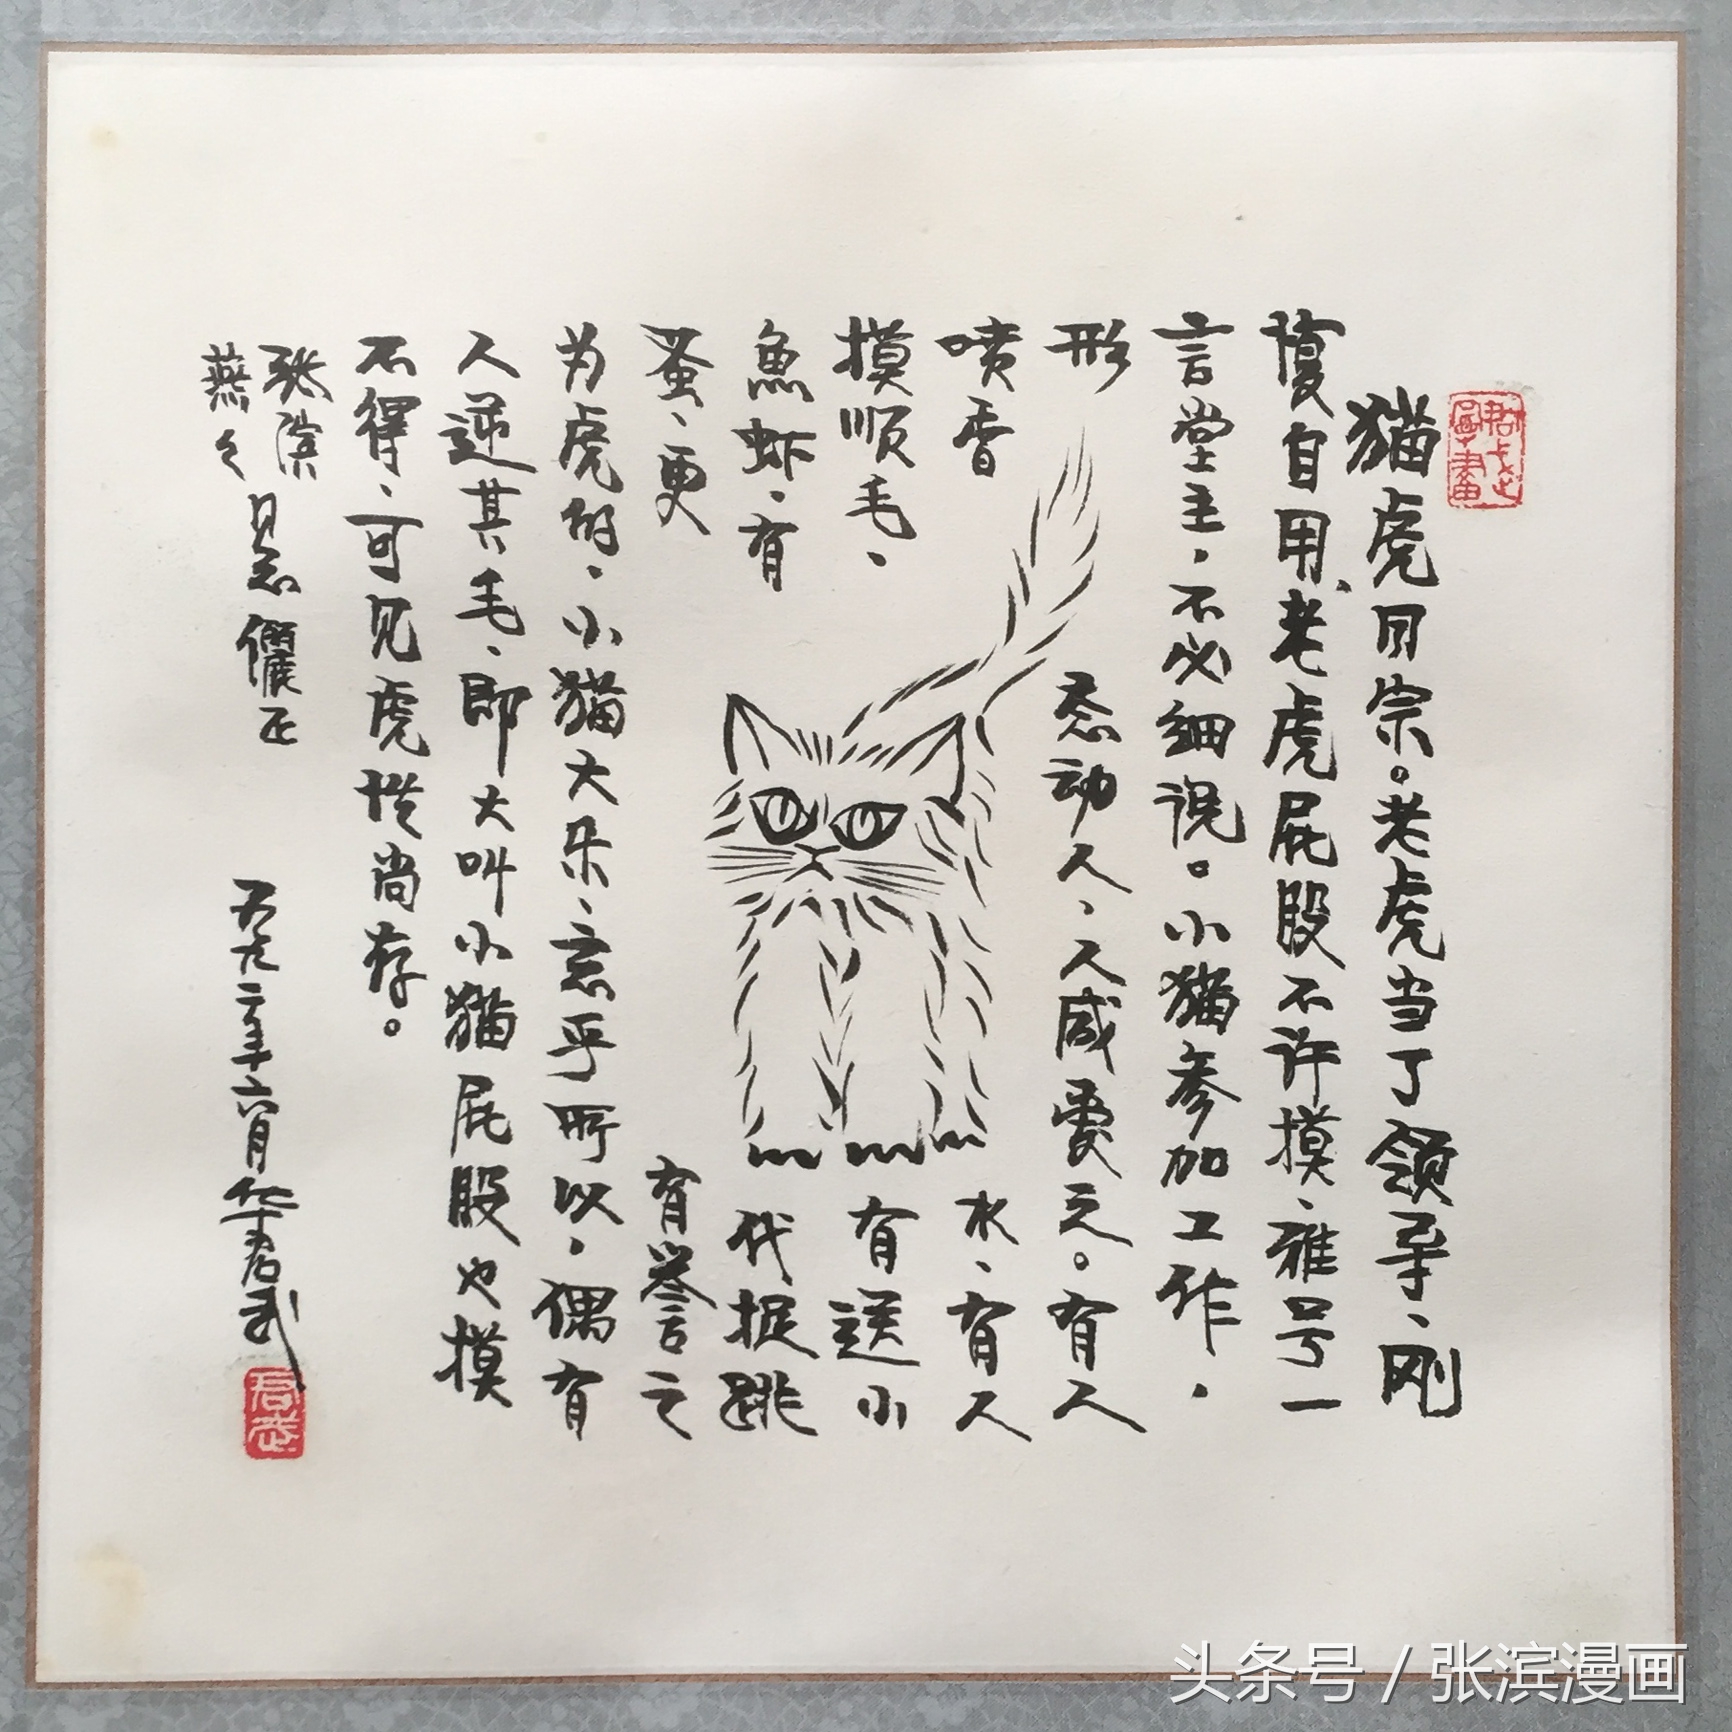 猫虎同宗。老虎当了领导、刚
愎自用、老虎屁股不许摸、雅号一
言堂主，不必细说。小猫参加工作，
形态动人、人咸爱之。有人
喷香水、有人
摸顺毛、有送小
魚虾、有代捉跳
蚤、更有誉之
为虎的、小猫大乐、忘乎所以，偶有
人逆其毛、即大叫小猫屁股也摸
不得、可见虎性尚存。
张滨
燕之
君武
头条号 / 张滨漫画